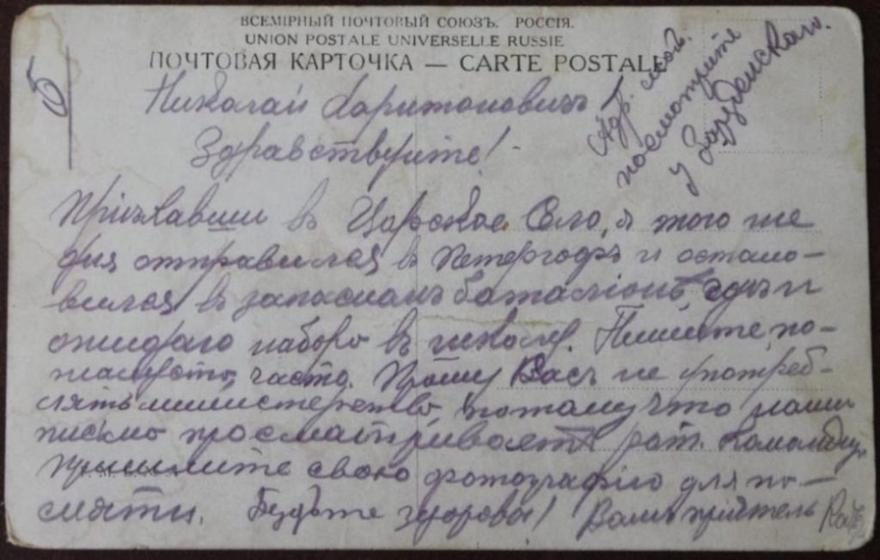 ВСЕМІРНЫЙ ПОЧТОВЫЙ СОЮЗЪ. РОССІЯ.
UNION POSTALE UNIVERSELLE RUSSIE
ПОЧТОВАЯ КАРТОЧКА — CARTE POSTALE
5
Николай Харитоновичъ!
Здравствуйте!
Адр. мой.
посмотрите
у
Пріехавши въ Царское Село, я того же
дня отправился въ Петергофъ и остано-
вился въ запасномъ баталіонѣ гдѣ и
ожидаю набора въ школу. Пишите, по-
жалуйста, часто. Прошу Васъ не употреб-
лять министерство, потому что наши
письма просматриваетъ рот. командир.
Пришлите свою фотографію для па-
мяти. Будьте здоровы! Вашъ пріятель